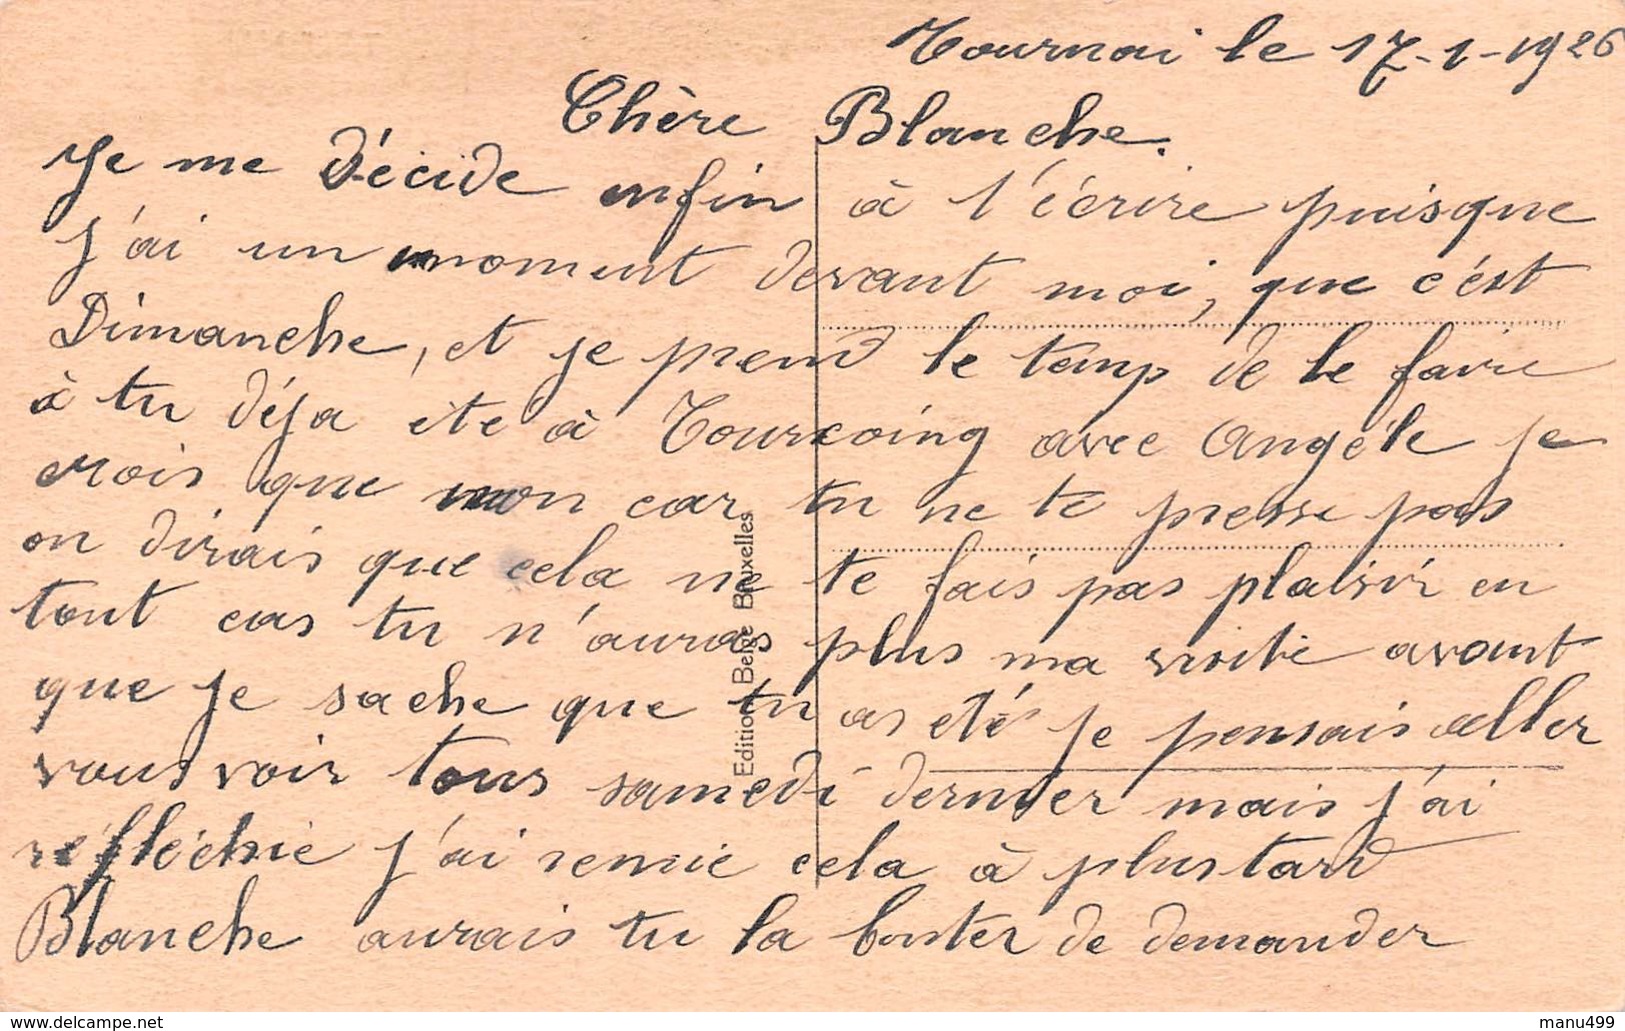 Tournai le 17-1-1926
Chère Blanche.
Je me décide enfin à t'écrire puisque
j'ai un moment devant moi, que c'est
Dimanche, et je prend le temp de le faire
à tu déja été à Tourcoing avec Angéle je
crois que non car tu ne te presse pas
on dirais que cela ne te fais pas plaisir en
tout cas tu n'auras plus ma visite avant
que je sache que tu as eté je pensais aller
vous voir tous samedi dernier mais j'ai
réfléchie j'ai remie cela à plus tard
Blanche aurais tu la bonter de demander
Edition Belge Bruxelles
manu499